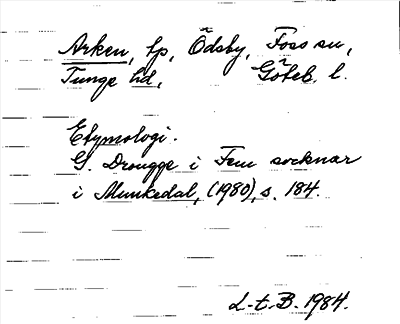 Arken, lp, Ödsby, Foss sn,
Tunge hd, Göteb. l.
Etymologi.
G. Drougge i Fem socknar
i Munkedal, (1980), s. 184.
L-t-B. 1984.